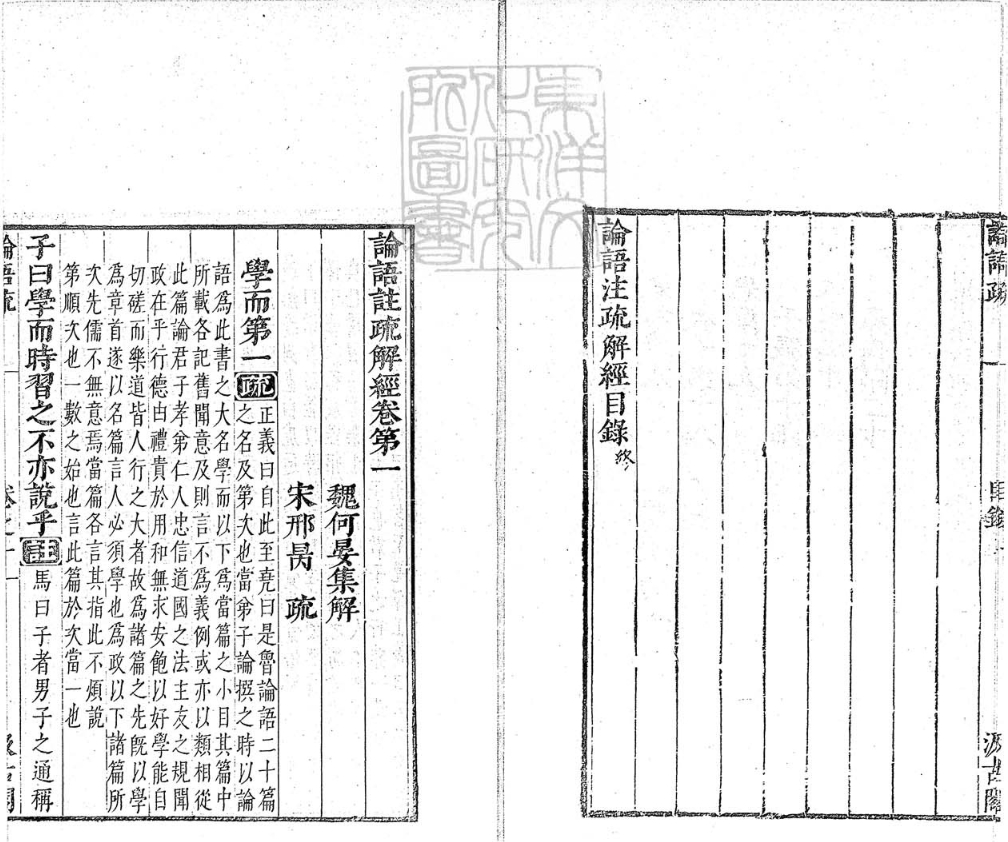 論語疏
目錄
汲古閣
論語注疏解經目錄終
東洋文
化研究
所圖書
論語註疏解經卷第一
魏何晏集解
宋邢昺 疏
學而第一疏正義曰自此至堯曰是魯論語二十篇
之名及第次也當弟子論撰之時以論
語爲此書之大名學而以下爲當篇之小目其篇中
所載各記舊聞意及則言不爲義例或亦以類相從
此篇論君子孝弟仁人忠信道國之法主友之規聞
政在乎行德由禮貴於用和無求安飽以好學能自
切磋而樂道皆人行之大者故爲諸篇之先既以學
爲章首遂以名篇言人必須學也爲政以下諸篇所
次先儒不無意焉當篇各言其指此不煩說
第順次也一數之始也言此篇於次當一也
子曰學而時習之不亦說乎註馬曰子者男子之通稱
論語疏
卷之一